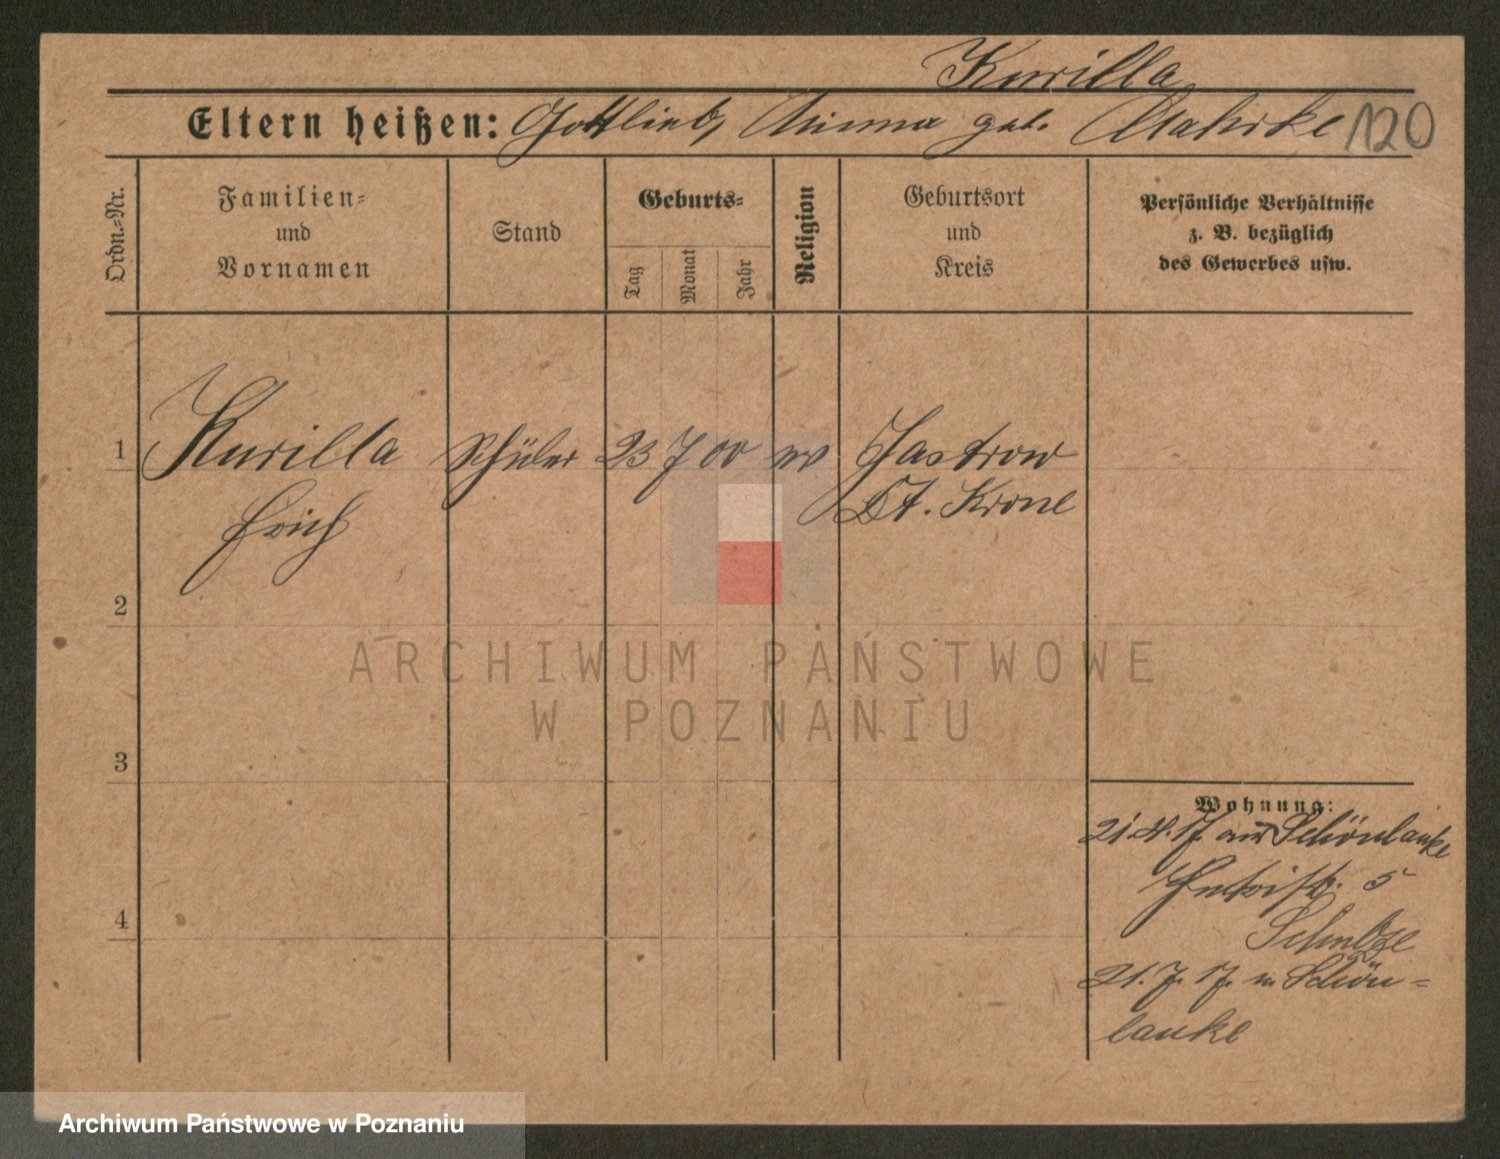 Kurilla
Eltern heißen: Gottlieb, Minna geb. Mahrke 120
Ordn.-Nr.
Familien-
und
Vornamen
Stand
Geburts-
Tag
Monat
Jahr
Religion
Geburtsort
und
Kreis
Persönliche Verhältnisse
z. B. bezüglich
des Gewerbes usw.
1 Kurilla Schüler 23 7 00 ev Jastrow
Erich Dt. Krone
2
3
4
Wohnung:
21.4.17 aus Schönlanke
5
Schulze
21.7.17. n. Schön-
lanke
ARCHIWUM PAŃSTWOWE
W POZNANIU
Archiwum Państwowe w Poznaniu